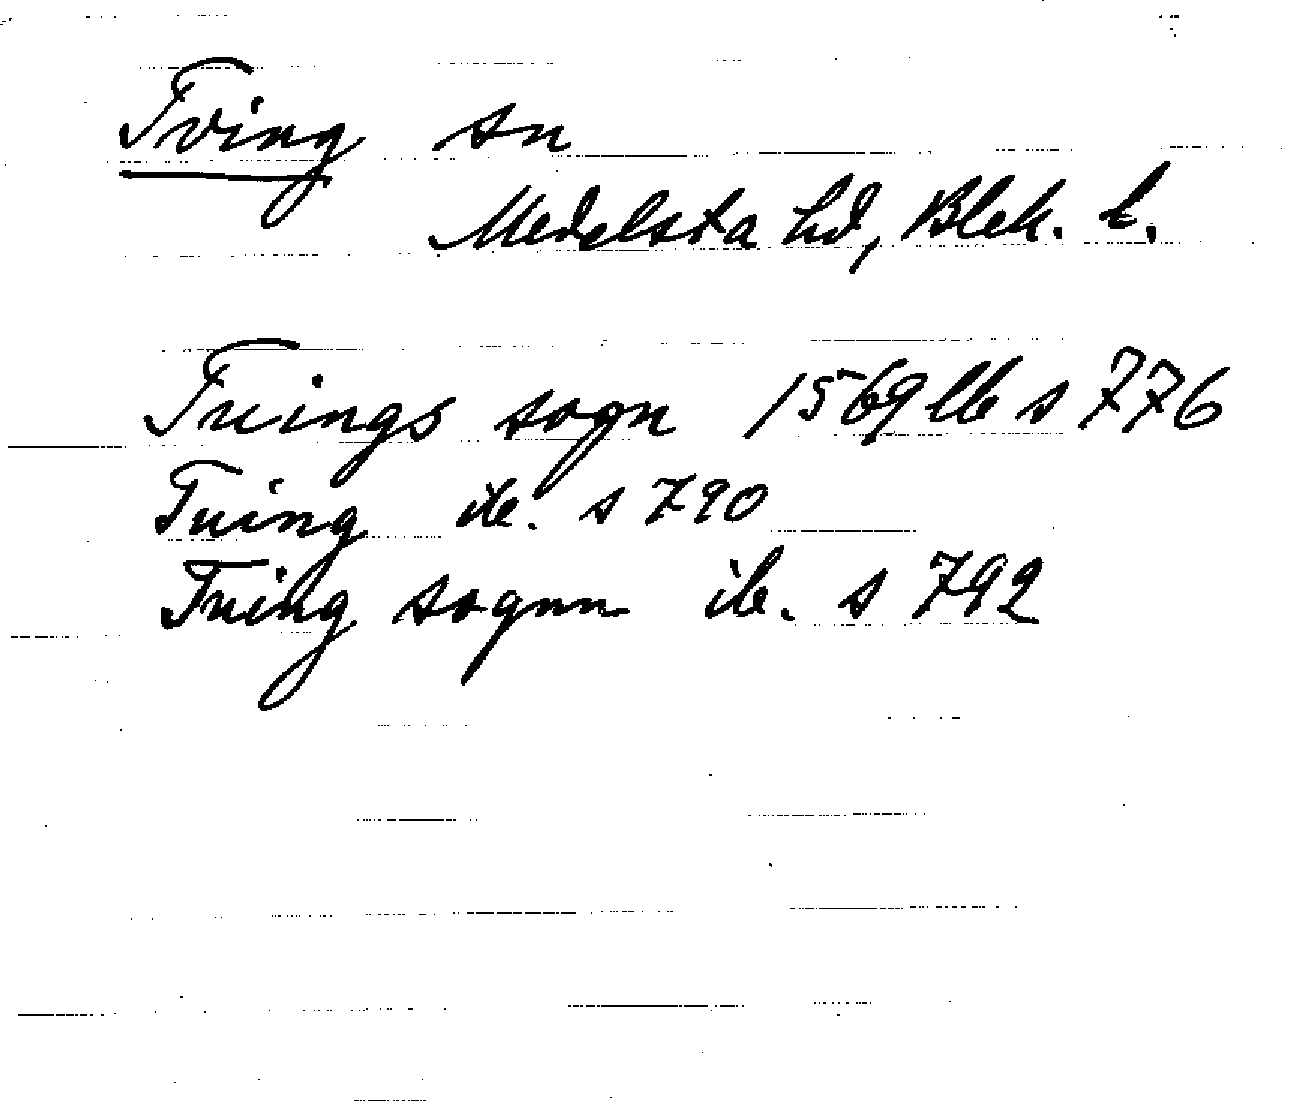 Tving sn
Medelsta hd, Blek. l.
Tuings sogn 1569 lb s 776
Tuing ib. s 790
Tuing sognn ib. s 792